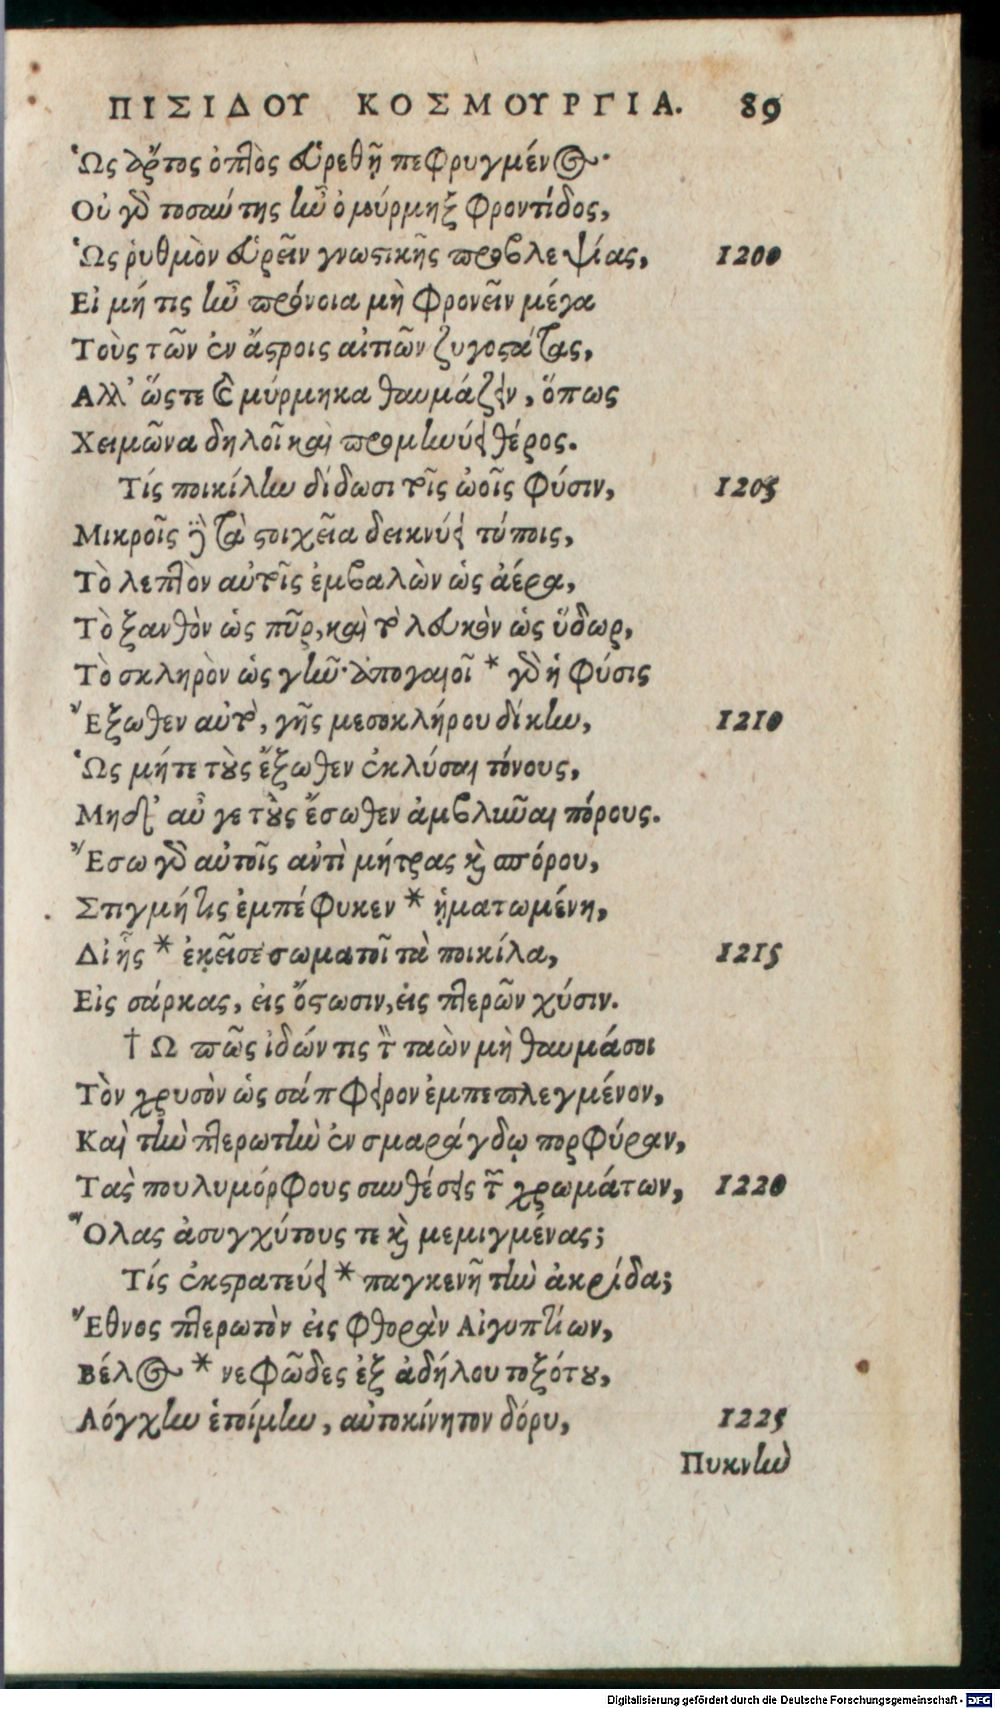 ΠΙΣΙΔΟΥ ΚΟΣΜΟΥΡΓΙΑ. 89
Ὡς ἄρτος ὀπτὸς εὑρεθῇ πεφρυγμένος·
Οὐ γὰρ τοσαύτης ἦν ὁ μύρμηξ φροντίδος,
Ὡς ῥυθμὸν εὑρεῖν γνωστικῆς προβλεψίας, 1200
Εἰ μή τις ἦν πρόνοια μὴ φρονεῖν μέγα
Τοὺς τῶν ἐν ἄστροις αἰτιῶν ζυγοστάτας,
Αλλ' ὥστε τὸν μύρμηκα θαυμάζειν, ὅπως
Χειμῶνα δηλοῖ καὶ προμηνύει θέρος.
Τίς ποικίλην δίδωσι τοῖς ὠοῖς φύσιν, 1205
Μικροῖς τὰ στοιχεῖα δεικνύει τύποις,
Τὸ λεπτὸν αὐτοῖς ἐμβαλὼν ὡς ἀέρα,
Τὸ ξανθὸν ὡς πῦρ, καὶ τὸ λευκὸν ὡς ὕδωρ,
Τὸ σκληρὸν ὡς γῆν· ἀπογαιοῖ * γὰρ ἡ φύσις
Ἔξωθεν αὐτὸ, γῆς μεσοκλήρου δίκην, 1210
Ὡς μήτε τοὺς ἔξωθεν ἐκλύσαι τόνους,
Μηδ' αὖ γε τοὺς ἔσωθεν ἀμβλῦναι πόρους.
Ἔσω γὰρ αὐτοῖς ἀντὶ μήτρας καὶ σπόρου,
Στιγμή τις ἐμπέφυκεν * ᾑματωμένη,
Δι ἧς * ἐκεῖσε σωματοῖ τὰ ποικίλα, 1215
Εἰς σάρκας, εἰς ὄστωσιν, εἰς πτερῶν χύσιν.
† Ω πῶς ἰδών τις τὸν ταὼν μὴ θαυμάσοι
Τὸν χρυσὸν ὡς σάπφειρον ἐμπεπλεγμένον,
Καὶ τὴν πτερωτὴν ἐν σμαράγδῳ πορφύραν,
Τὰς πουλυμόρφους συνθέσεις τῶν χρωμάτων, 1220
Ὅλας ἀσυγχύτους τε καὶ μεμιγμένας;
Τίς ἐκστρατεύει * παγκενῆ τὴν ἀκρίδα;
Ἔθνος πτερωτὸν εἰς φθορὰν Αἰγυπτίων,
Βέλος * νεφῶδες ἐξ ἀδήλου τοξότου,
Λόγχην ἑτοίμην, αὐτοκίνητον δόρυ, 1225
Πυκνὴν
Digitalisierung gefördert durch die Deutsche Forschungsgemeinschaft - DFG